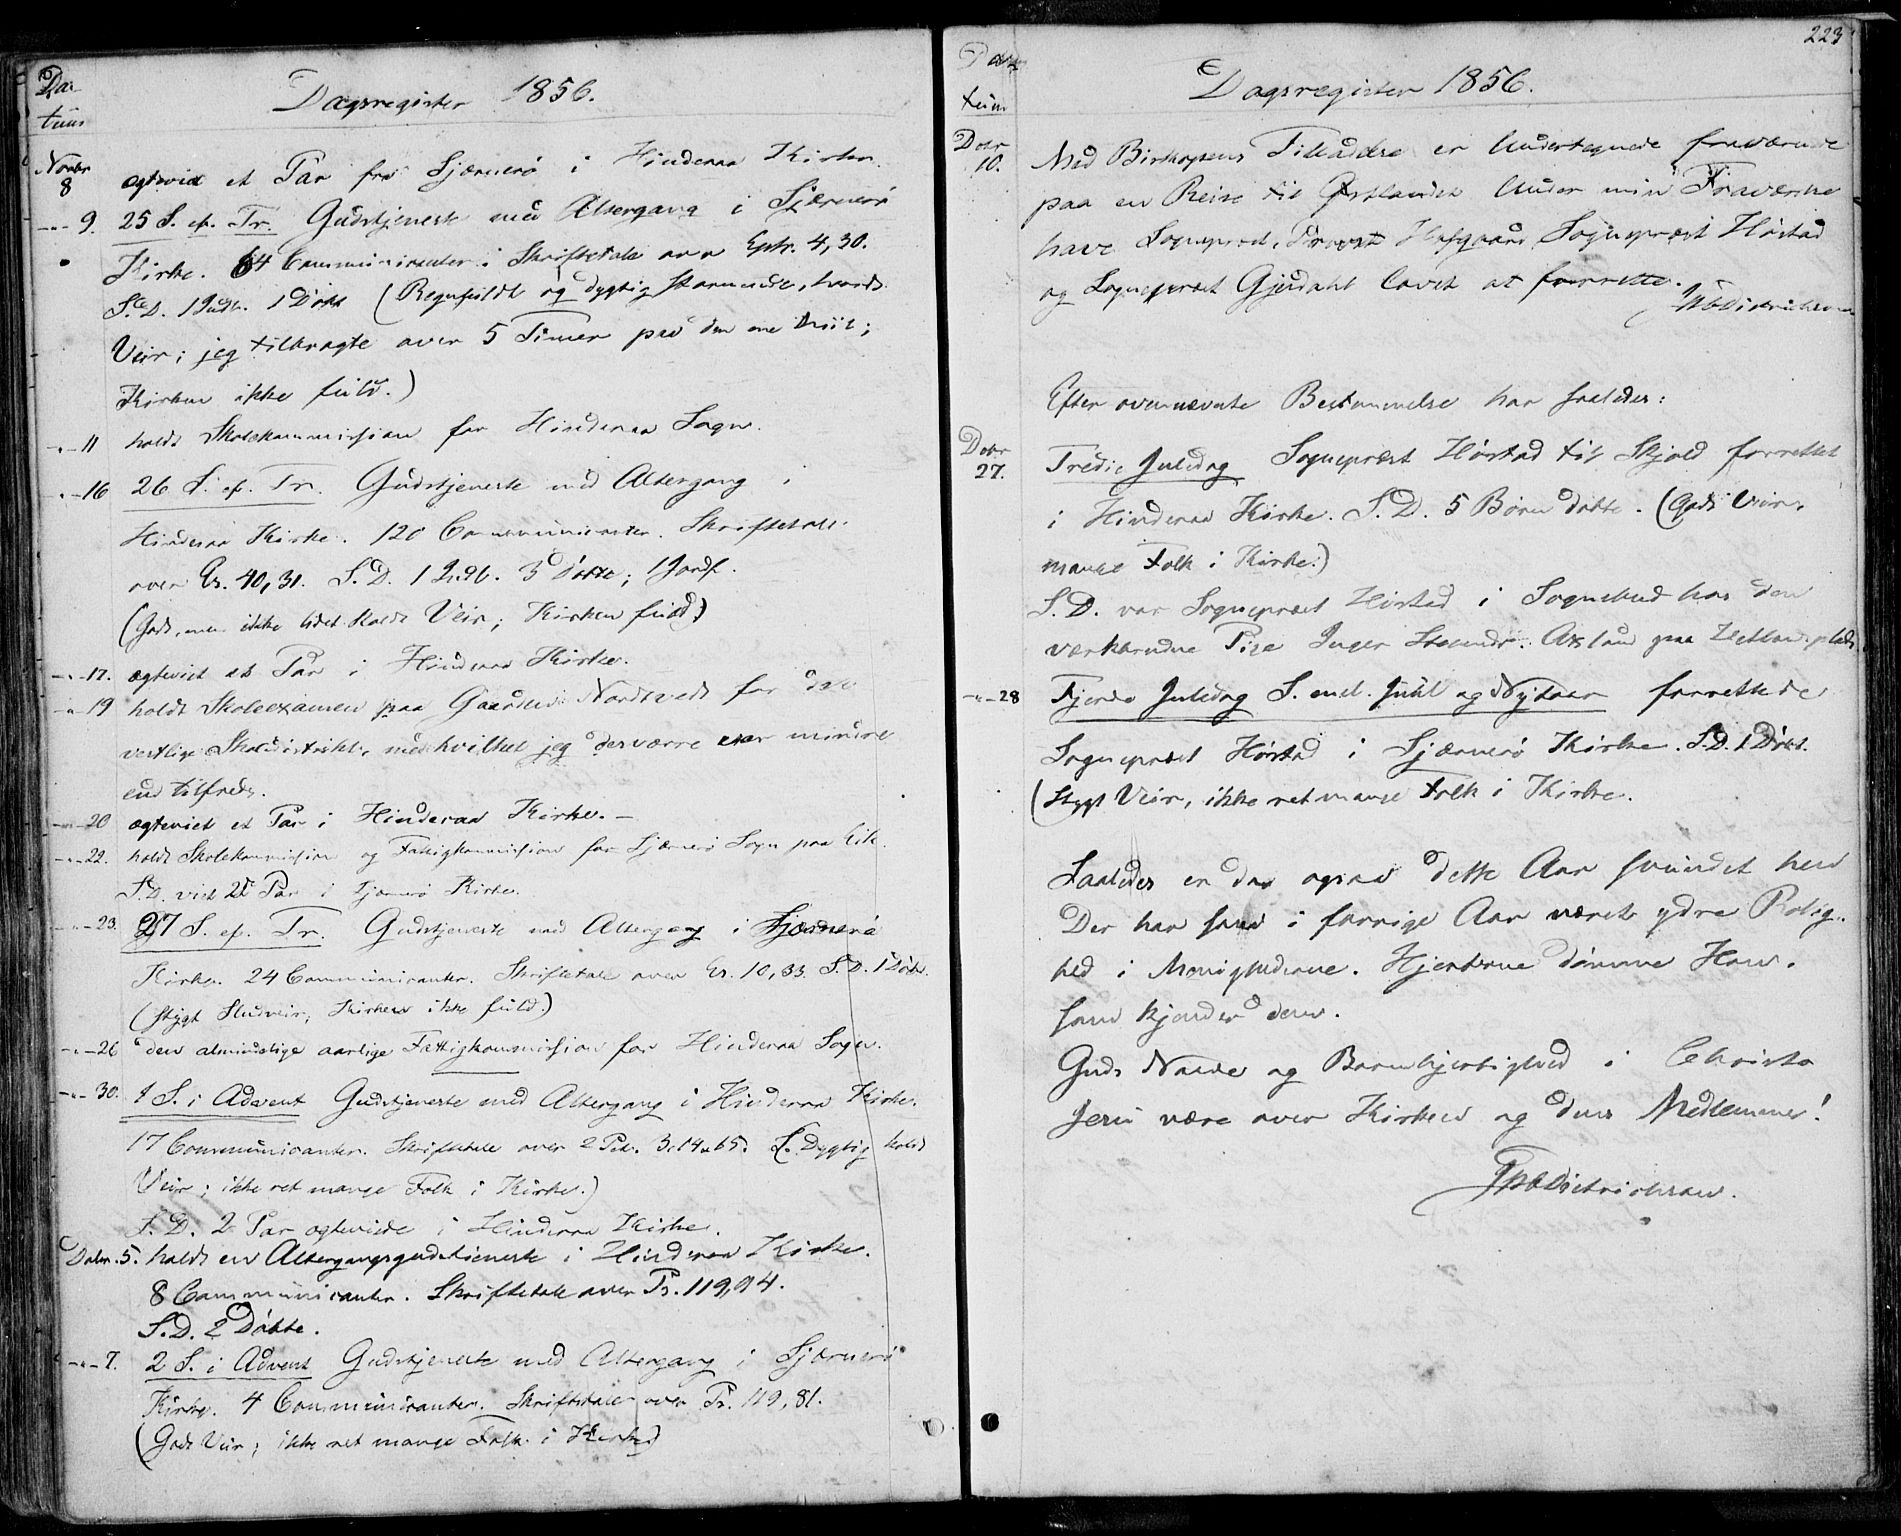 Da-
tum
Dagsregister 1856.
Novbr
8 ægteviet et Par fra Sjærnerö i Hinderaa Kirke.
-"- 9. 25 S. ef. Tr. Gudstjeneste med Altergang i Sjærnerö
Kirke. 64 Communicanter. Skriftetale over Eph. 4,30.
S.D. 1 Indl. 1 Döbt (Regnfuldt og dygtig stormende, haardt
Veir; jeg tilbragte over 5 Timer paa den ene Miil;
Kirken ikke fuld.)
-"- 11 holdt Skolekommission for Hinderaa Sogn.
-"- 16 26 S. ef. Tr. Gudstjeneste med Altergang i
Hinderaa Kirke. 120 Communicanter. Skriftetale
over Es. 40,31. S.D. 1 Indl. 3 Döbte; 1 Jordf.
(Godt, men ikke lidet koldt Veir; Kirken fuld.)
-"- 17. ægteviet et Par i Hinderaa Kirke.
-"- 19 holdt Skoleexamen paa Gaarden Nordtvedt for det
vestlige Skoledistrikt, med hvilket jeg desværre var mindre
end tilfreds.
-"- 20 ægteviet et Par i Hinderaa Kirke. -
-"- 22. holdt Skolekommission og Fattigkommission for Sjærnerö Sogn paa Eik.
S.D. viet 2 Par i Sjærnerö Kirke.
-"- 23. 27 S. ef. Tr. Gudstjeneste med Altergang i Sjærnerö
Kirke. 24 Communicanter. Skriftetale over Es. 10,33. S.D. 1 Döbt.
(Stygt Sludveir, Kirken ikke fuld.)
-"- 26 den almindelige aarlige Fattigkommission for Hinderaa Sogn.
-"- 30. 1 S. i Advent Gudstjeneste med Altergang i Hinderaa Kirke.
17 Communicanter. Skriftetale over 2 Pet. 3,14. Dygtig koldt
Veir; ikke ret mange Folk i Kirke.)
S.D. 2 Par ægteviede i Hinderaa Kirke.
Debr. 5. holdt en Altergangsgudstjeneste i Hinderaa Kirke.
8 Communicanter. Skriftetale over Ps. 119,94.
S.D. 2 Döbte.
-"- 7. 2 S. i Advent Gudstjeneste med Altergang i Sjærnerö
Kirke. 4 Communicanter. Skriftetale over Ps. 119,81.
(Godt Veir; ikke ret mange Folk i Kirke.)
223
Da-
tum
Dagsregister 1856.
Debr
10. Med Biskopens Tilladelse er Undertegnede fraværende
paa en Reise til Østlandet. Under min Fraværelse
have Sognepræst, Provst Hofgaard, Sognepræst Höstad
og Sognepræst Gjerdahl lovet at forrette.
Diderichsen
Efter ovennævnte Bestemmelse har saaledes:
Debr
27. Tredie Juledag Sognepræst Höstad til Skjold forrettet
i Hinderaa Kirke. S.D. 5 Börn döbte. (Godt Veir,
mange Folk i Kirke.)
S.D. var Sognepræst Höstad i Sognebud hos den
værkbrudne Pige Inger Aasland paa Hetlandsplads.
-"- 28 Fjerde Juledag S. mel. Juul og Nytaar forrettede
Sognepræst Höstad i Sjærnerö Kirke. S.D. 1 Döbt.
(Stygt Veir, ikke ret mange Folk i Kirke.
Saaledes er da ogsaa dette Aar svundet hen
Der har som i forrige Aar været ydre Rolig-
hed i Menighederne. Hjerterne dömme Han,
som kjender dem.
Guds Naade og Barmhjertighed i Christo
Jesu være over Kirken og dens Medlemmer!
Diderichsen.